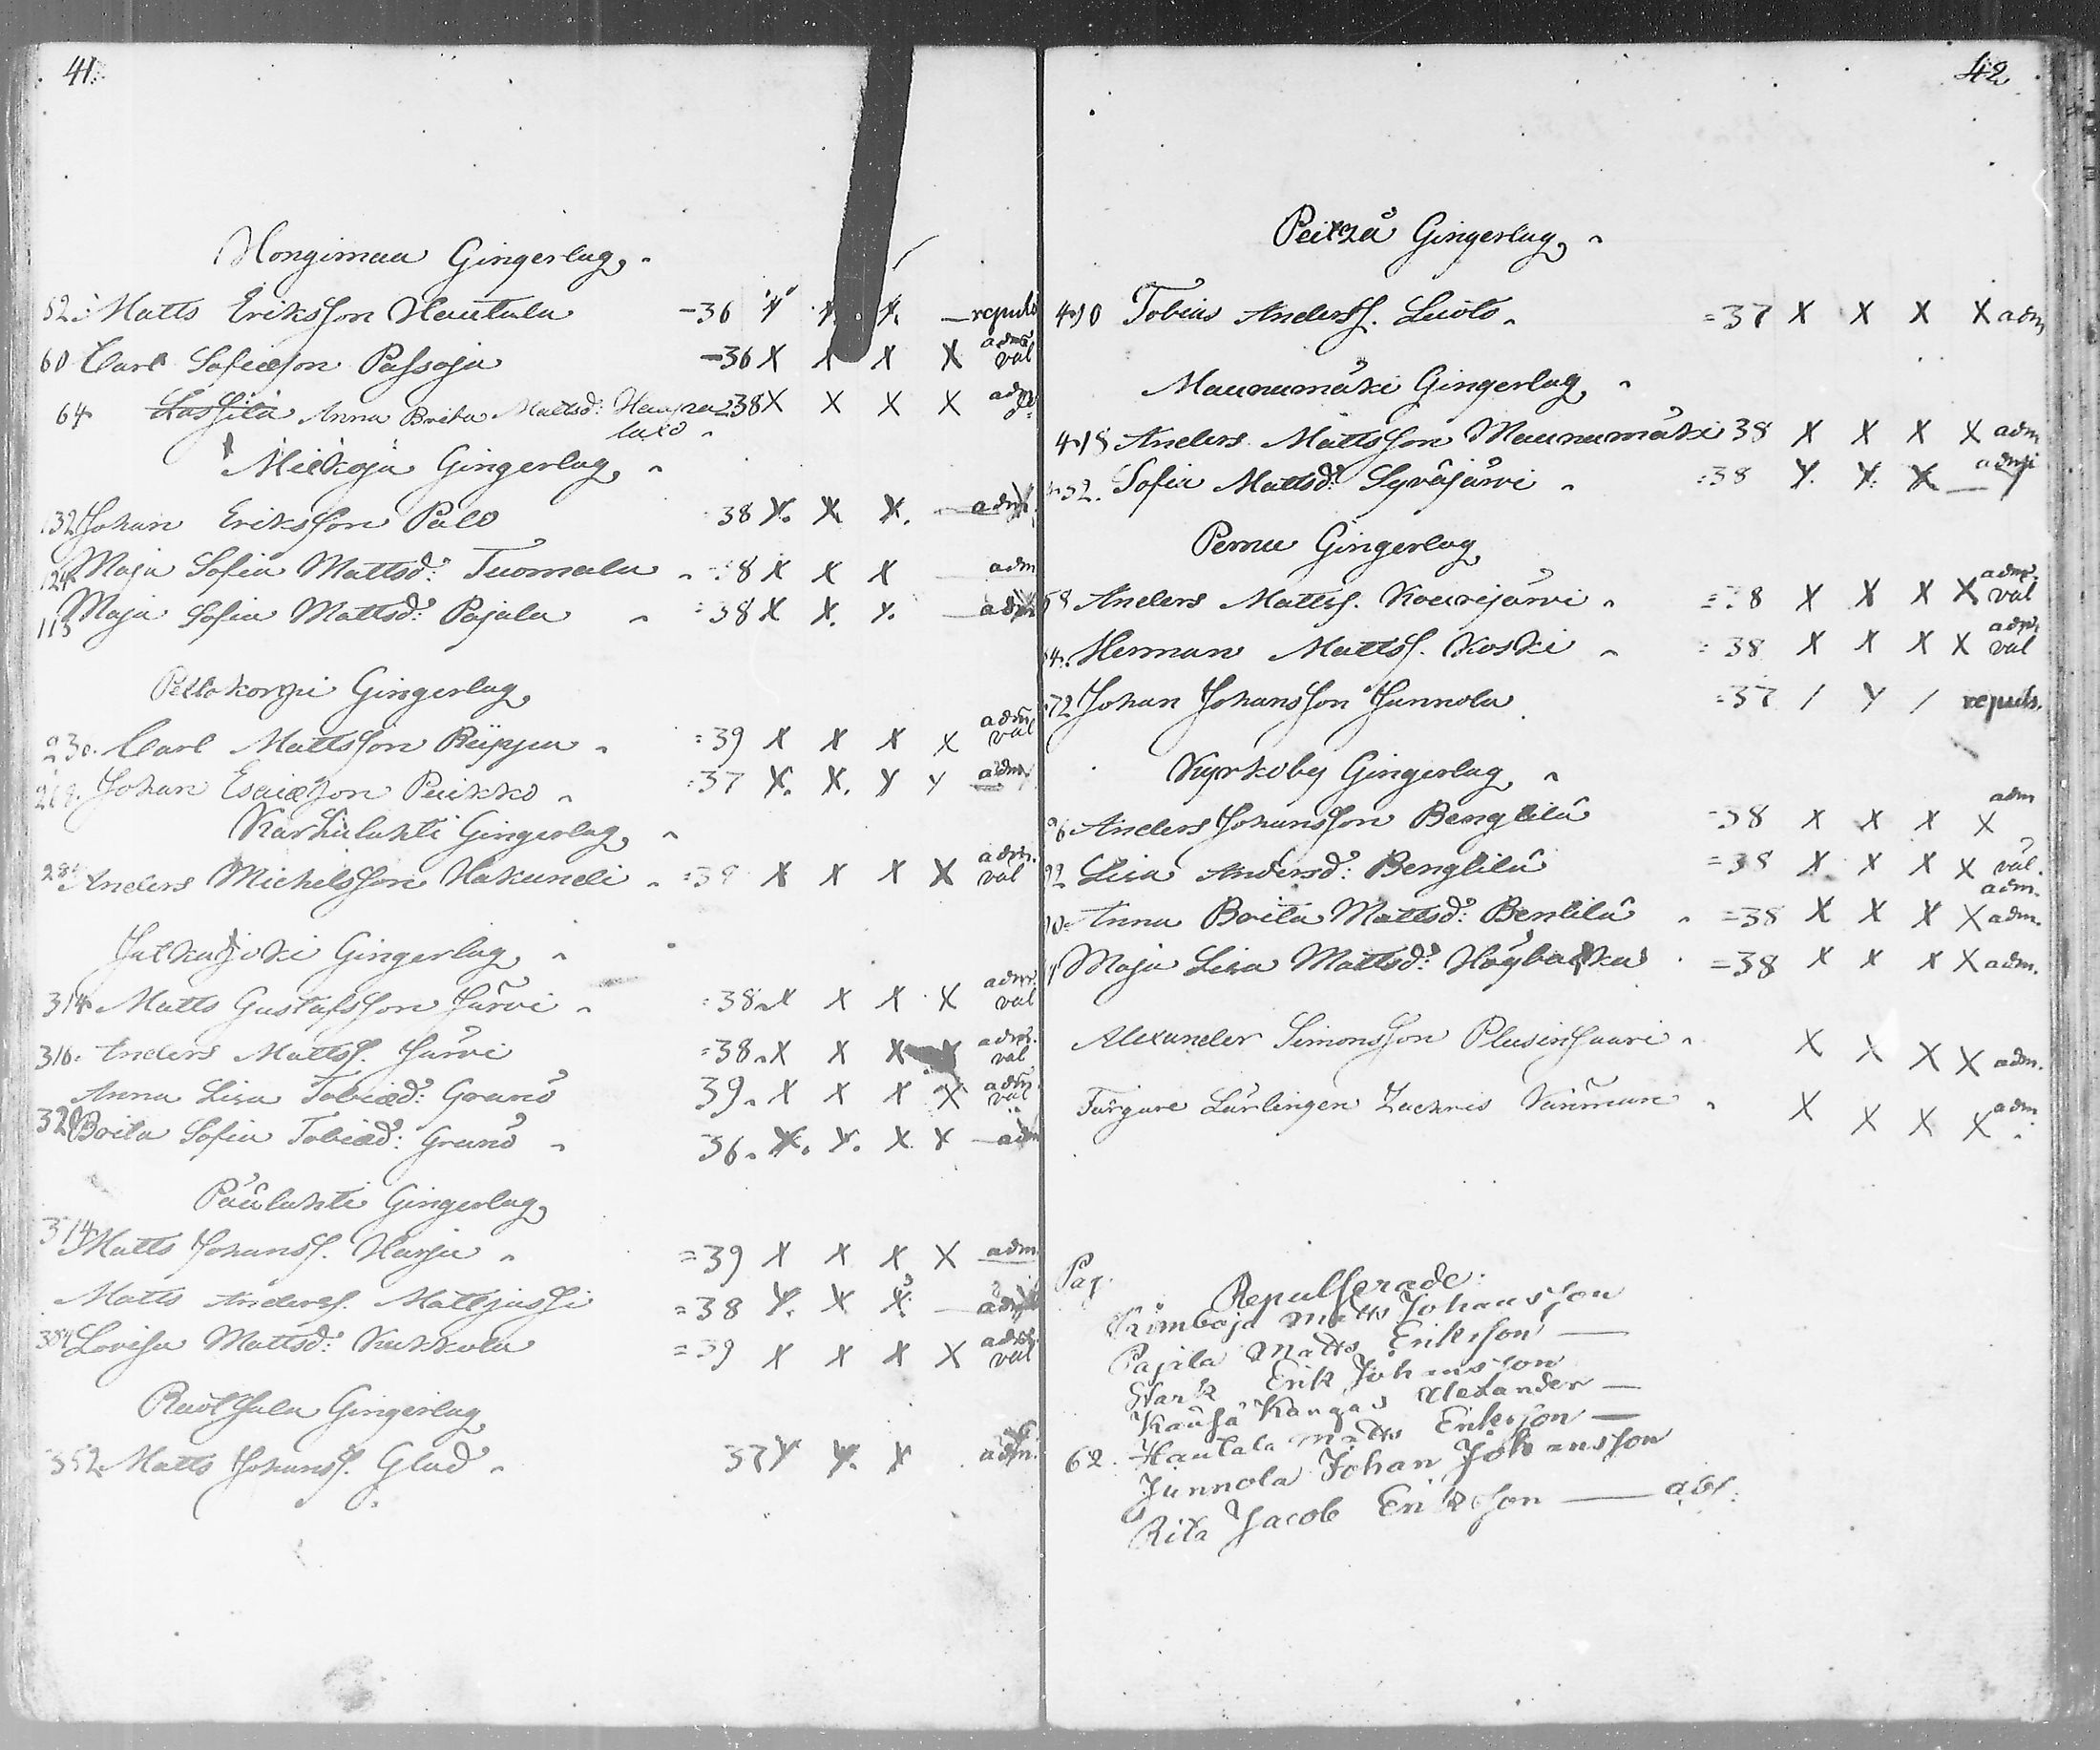 41.
Hongimaa Gingerlag.
52. Matts Eriksson Hautala =36 X X X. — repuls
60 Carl Esaiæson Passoja =36 X X X X adm. väl
64. Lassila Anna Brita Mattsd: Haapa =38 X X X X adm
luxo
Mieskoja Gingerlag.
132 Johan Eriksson Palo 38 X. X. X. — adm.
124. Maja Sofia Mattsd: Tuomala =38 X X X adm
113 Maja Sofia Mattsd: Pajala =38 X X. X. — adm
Peltokorpi Gingerlag
230. Carl Mattsson =39 X X X X adm. väl
Johan Esaiæson Puikko =37 X. X. X X adm.
Karhulahti Gingerlag.
Anders Michelsson Hakundi X X X X adm. väl
Jalkajoki Gingerlag.
314 Matts Gustafsson Järvi =38. X X X X adm. väl
316. Anders Mattss. Järvi =38. X X X X adm. väl
Anna Lisa Tobiæd: Granö 39. X X X X adm. väl
320 Brita Sofia Tobiæd: Granö 36. X. X. X X — adm
Paulahti Gingerlag
374 Matts Johanss. Harju =39 X X X X adm
Matts Anderss. Mattjussi =38 X. X X. — adm
384 Lovisa Mattsd: Kukkola =39 X X X X adm. väl
Rautsala Gingerlag
352. Matts Johanss. Glad 37 X X. X adm.
42.
Peitzå Gingerlag.
410 Tobias Anderss. Luoto. =37 X X X X adm
Maunumäki Gingerlag.
418 Anders Mattsson Maunumäki 38 X X X X adm
Sofia Mattsd: Syväjärvi =38 X. X. X — adm
Pernu Gingerlag
Anders Mattss. Kourijärvi =38 X X X X adm. väl
Herman Mattss. Koski =38 X X X X adm. väl
72 Johan Johansson Junnola =37 / X / repuls.
Kyrkoby Gingerlag.
Anders Johansson Bengtilä =38 X X X X adm
92 Lisa Andersd: Bengtilä =38 X X X X väl. adm.
Anna Brita Mattsd: Bentilä =38 X X X X adm.
Maja Lisa Mattsd: Höybacka =38 X X X X adm.
Alexander Simonsson Plusinsaari X X X X adm.
Färgare Lärlingen Zachris Vänman X X X X adm
Pag.
Repulserade:
Kimboja Matts Johansson
Pajala Matts Eriksson —
Stark Erik Johansson
Kausa Kangas Alexander —
62. Hautala Matts Eriksson —
Junnola Johan Johansson
Rita Jacob Eriksson — abs: